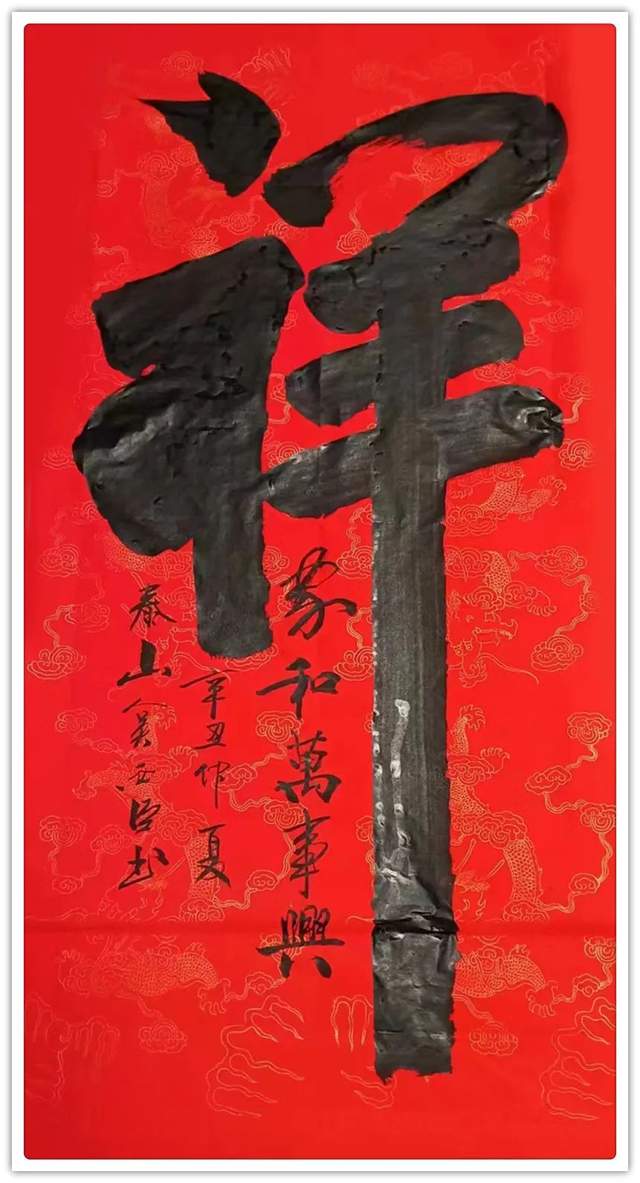 祥
家和萬事興
辛丑仲夏
泰山人吴臣书